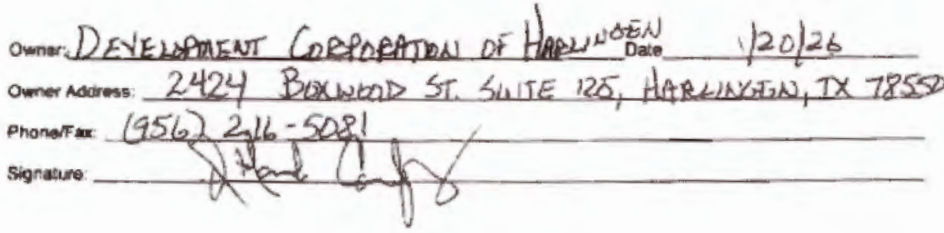 Owner: DEVELOPMENT CORPORATION OF HARLINGEN Date 1/20/26
Owner Address: 2424 BOXWOOD ST. SUITE 125, HARLINGEN, TX 78552
Phone/Fax: (956) 216-5081
Signature: